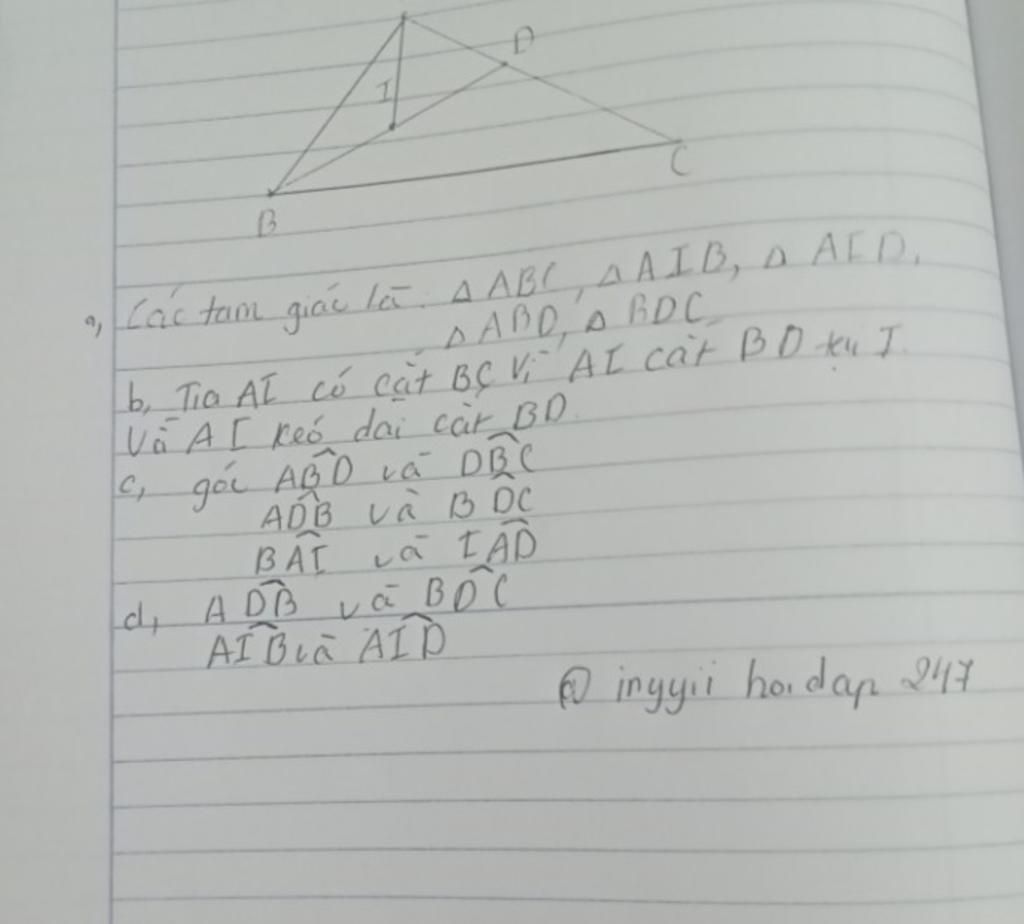 D
I
C
B
a, Các tam giác là: △ ABC, △ AIB, △ AID,
△ ABD, △ BDC
b, Tia AI có cắt BC vì AI cắt BD tại I
Và AI keó dai cắt BD.
c, góc ABD và DBC
ADB và BDC
BAI và IAD
d, ADB và BDC
AIB và AID
@ inyyii hoidap 247